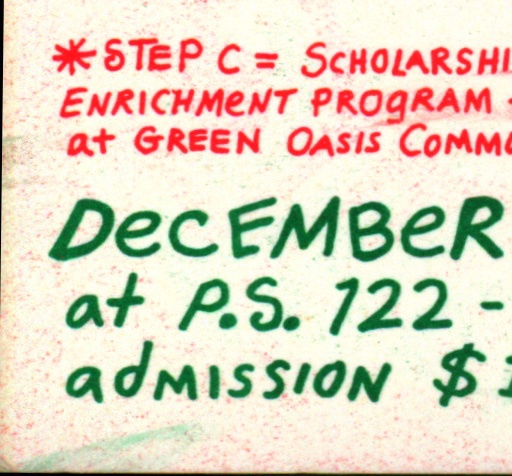 *STEP C = SCHOLARSHI
ENRICHMENT PROGRAM -
at GREEN OASIS COMMU
DeCEMBeR
at P.S. 122 -
admISSION $1